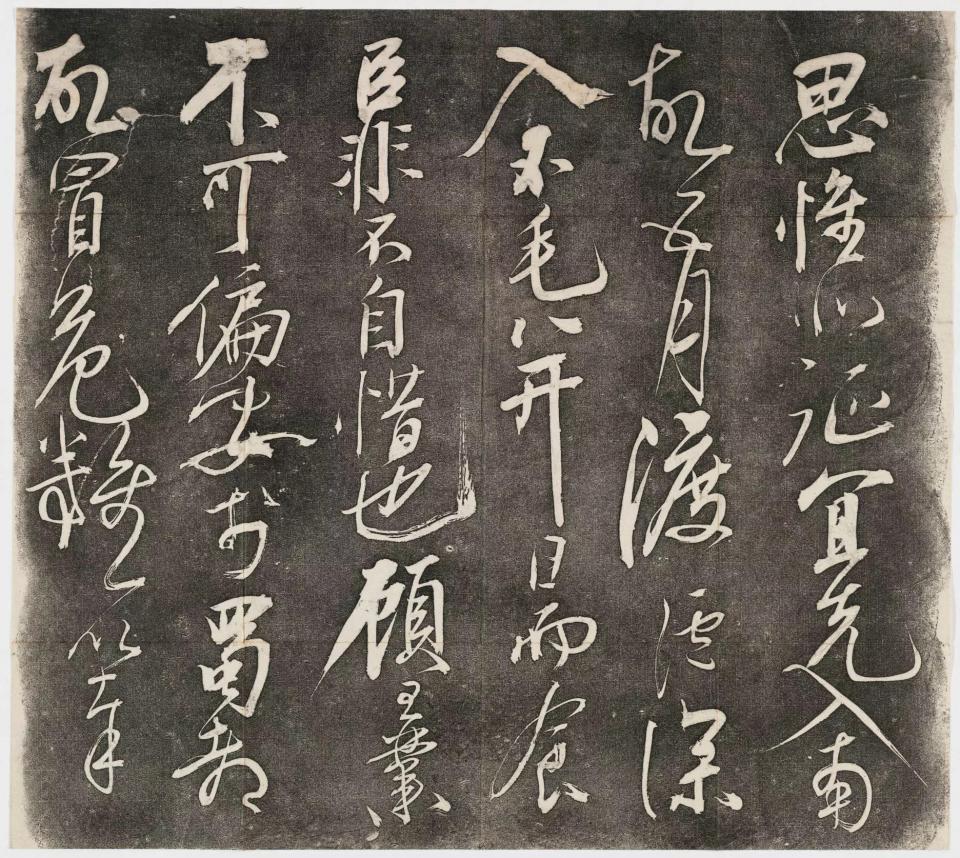 思惟北征宜先入南
故五月渡瀘深
入不毛八开日而食
臣非不自惜也顧王業
不可偏安於蜀都
故冒危難以奉